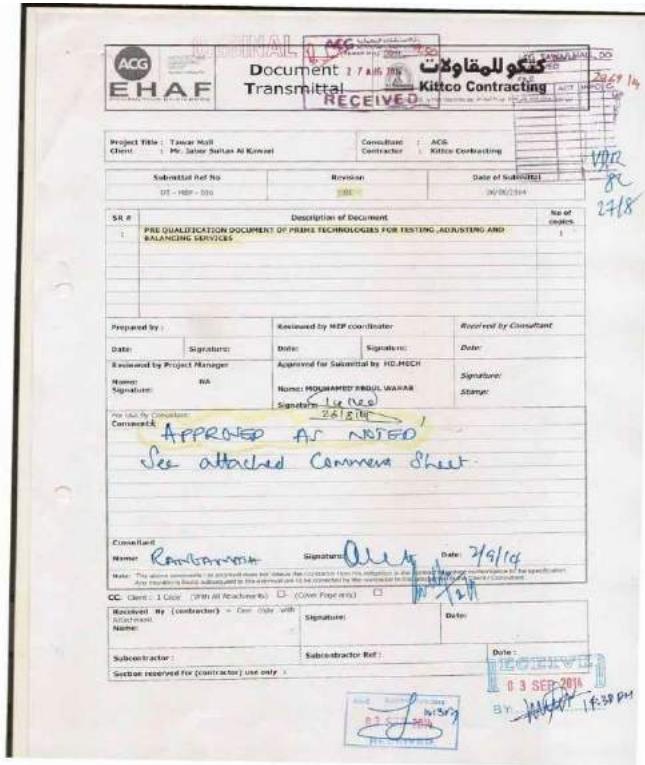 ORIGINAL
ACG
EHAF
Document
Transmittal
كتكو للمقاولات
Kittco Contracting
27 AUG 2014
RECEIVED
Project Title : Tawar Mall
Consultant : ACG
Client : Mr. Jabor Sultan Al Kawari
Contractor : Kittco Contracting
VDR
82
27/8
Submittal Ref No
Revision
Date of Submittal
DT - MEP - 036
26/08/2014
SR #
Description of Document
No of copies
1
PRE QUALIFICATION DOCUMENT OF PRIME TECHNOLOGIES FOR TESTING ,ADJUSTING AND
1
BALANCING SERVICES
Prepared by :
Reviewed by MEP coordinator
Received by Consultant
Date:
Signature:
Date:
Signature:
Date:
Reviewed by Project Manager
Approved for Submittal by HD.MECH
Name: WA
Signature:
Signature:
Name: MOUHAMED ABDUL WAHAB
Stamp:
Signature:
26/8/14
For Use By Consultant:
Comments:
APPROVED AS NOTED
See attached Comment Sheet.
Consultant
Name:
Signature:
Date: 2/9/14
CC. Client : 1 Copy (With All Attachments) (Cover Page only)
Received By (contractor) - One copy with Attachment
Name:
Signature:
Date:
Subcontractor :
Subcontractor Ref :
Date :
Section reserved for (contractor) use only :
RECEIVED
03 SEP 2014
BY
14:30 PM
RECEIVED